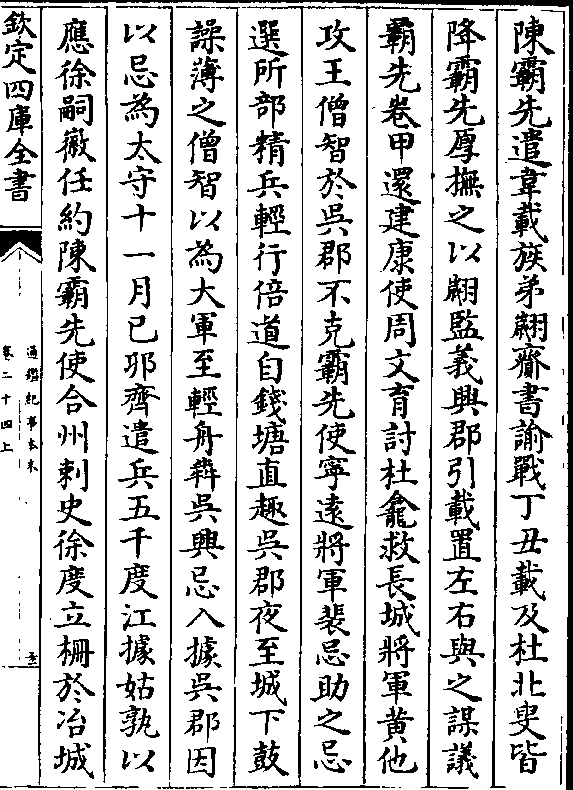 陳霸先遣韋載族弟翽齎書諭載丁丑載及杜北叟皆
降霸先厚撫之以翽監義興郡引載置左右與之謀議
霸先卷甲還建康使周文育討杜龕救長城將軍黃他
攻王僧智於吳郡不克霸先使寧逺將軍裴忌助之忌
選所部精兵輕行倍道自錢塘直趣吳郡夜至城下鼓
譟薄之僧智以為大軍至輕舟奔吳興忌入據吳郡因
以忌為太守十一月已邜齊遣兵五千度江據姑孰以
應徐嗣徽任約陳霸先使合州刺史徐度立柵於冶城
欽定四庫全書
通鑑紀事本末
卷二十四上